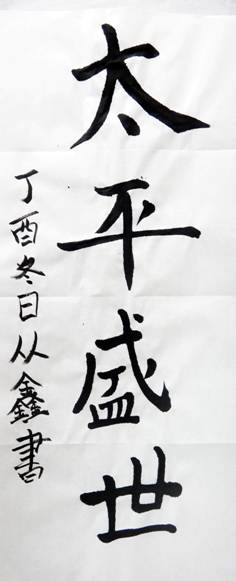 太平盛世
丁酉冬日从鑫書